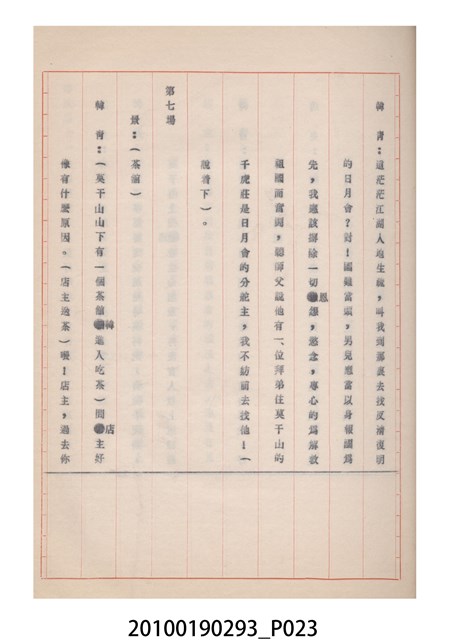 韓青:這茫茫江湖人地生疏,叫我到那裏去找反清復明
的日月會?對!國難當頭,男兒應當以身報國為
先,我應該摒除一切恩怨,慾念,專心的為解救
祖國而奮鬥,聽師父說他有一、位拜弟住莫干山的
千虎莊是日月會的分舵主,我不訪前去找他!(
說着下)。
第七場
景:(茶館)
韓青:(莫干山山下有一個茶館韓進入吃茶)問店主好
像有什麼原因。(店主泡茶)喂!店主,過去你
20100190293_P023